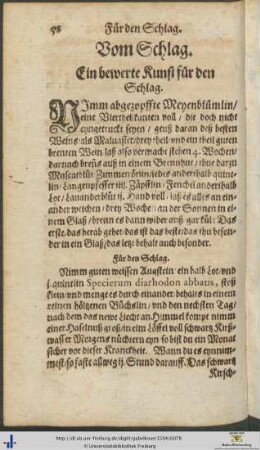 58 Für den Schlag.
Vom Schlag.
Ein bewerte Kunst für den
Schlag.
NImm abgezopffte Meyenblümlin/
eine Vierthelkanten voll / die doch nicht
eyngetruckt seyen / geuß daran deß besten
Weins als Maluasier/drey theil vnd ein theil guten
brenten Wein laß also vermacht stehen 4. Wochen/
darnach breñs auß in einem Brennhut/ thue darzu
Muscatblüt Zummetrörlin/jedes anderthalb quint-
lin/Langenpfeffer iiij. Zäpfflin/ Fenchel anderthalb
Lot/Lauandelblüt ij. Hand voll/ laß es alles an ein
ander weichen/ drey Wochen an der Sonnen in ei-
nem Glaß/brenn es dann wider auß gar kül: Das
erste/das herab gehet/das ist das beste/das thu beson-
der in ein Glaß/das letzt behalt auch besonder.
Für den Schlag.
Nimm guten weissen Augstein/ein halb Lot/vnd
j.quintlin Specierum diarhodon abbatis, stoß
klein/vnd menge es durch einander: behalts in einem
reinen höltzenen Büchslin/ vnd den nechsten Tag/
nach dem das newe Liecht an Himmel kompt nimm
einer Haselnuß groß/in eim Löffel voll schwartz Kirß-
wasser Morgens nüchtern eyn/so bist du ein Monat
sicher vor dieser Kranckheit. Wann du es eynnim-
mest/so faste allweg ij. Stund darauff. Das schwartz
Kirsch-
http://dl.ub.uni-freiburg.de/diglit/gabelkover1594/0078
© Universitätsbibliothek Freiburg